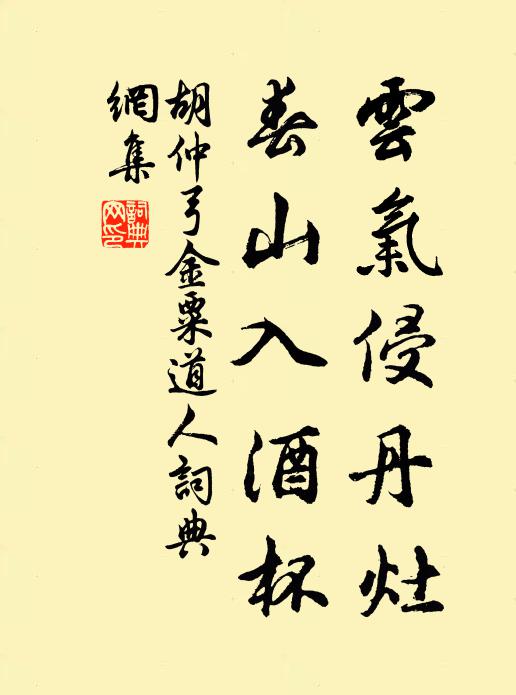 雲氣侵丹灶
春山入酒杯
胡仲弓金粟道人詞典
網集
詞典網印